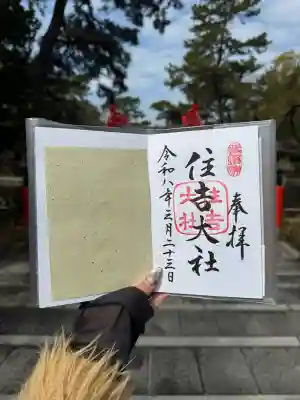 奉拝
住吉大社
令和八年三月二十三日
住吉大社